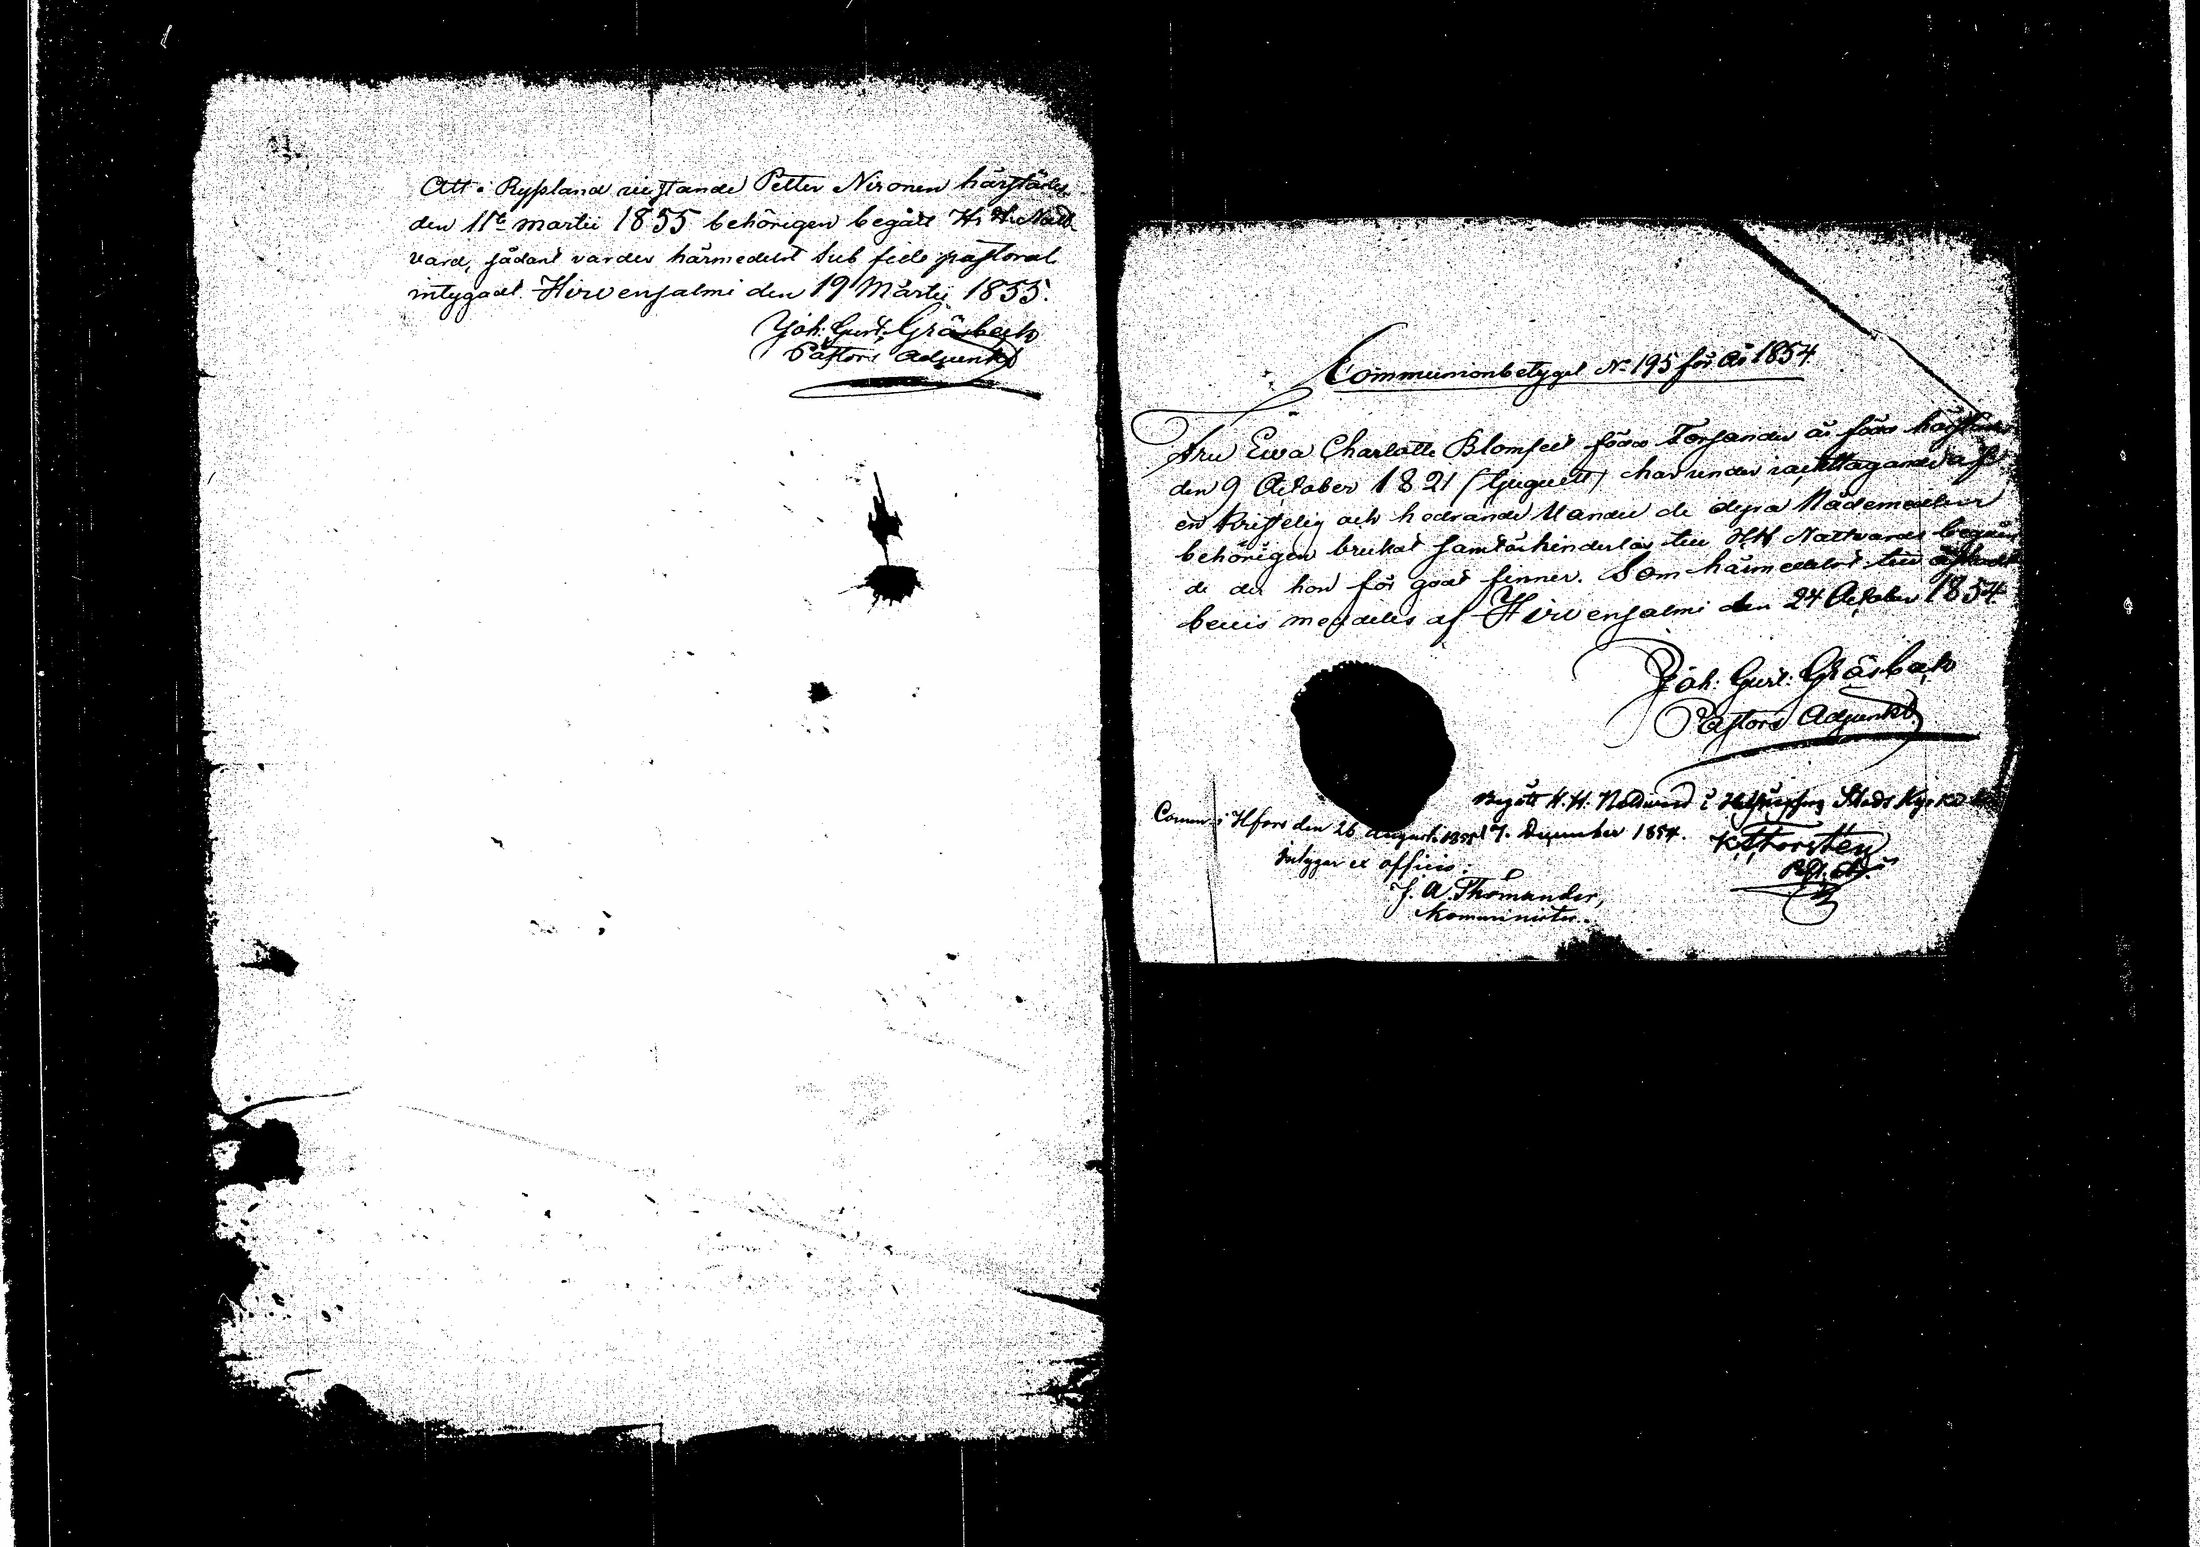 Att i Ryssland vistande Petter Nironen härstädes
den 11te Martii 1855 behörigen begått H. H. Natt-
vard, sådant varder härmedelst sub fide pastorali
intygadt. Hirvensalmi den 19 Martii 1855.
Joh: Gust: Gräsbeck
Pastors Adjunkt
Communionbetyget No 195 för År 1854
Fru Ewa Charlotta Blomfelt född Forsander är född härstädes
den 9 October 1821 har under iakttagande af
en kristelig och hedrande Vandel de dyra Nådemedlen
behörigen brukat samt är hinderlös till H H Nattvards begåen
de der hon för godt finner. Som härmedelst till äskadt
bevis meddelas af Hirvensalmi den 24 October 1854.
Joh: Gust: Gräsbeck
Pastors Adjunkt
Begått H. H. Nattvard i Stads Kyrka
17. December 1854.
Comm. i Hfors den 26 August. 1855
Intygar ex officio:
J. A. Thomander,
Komminister.